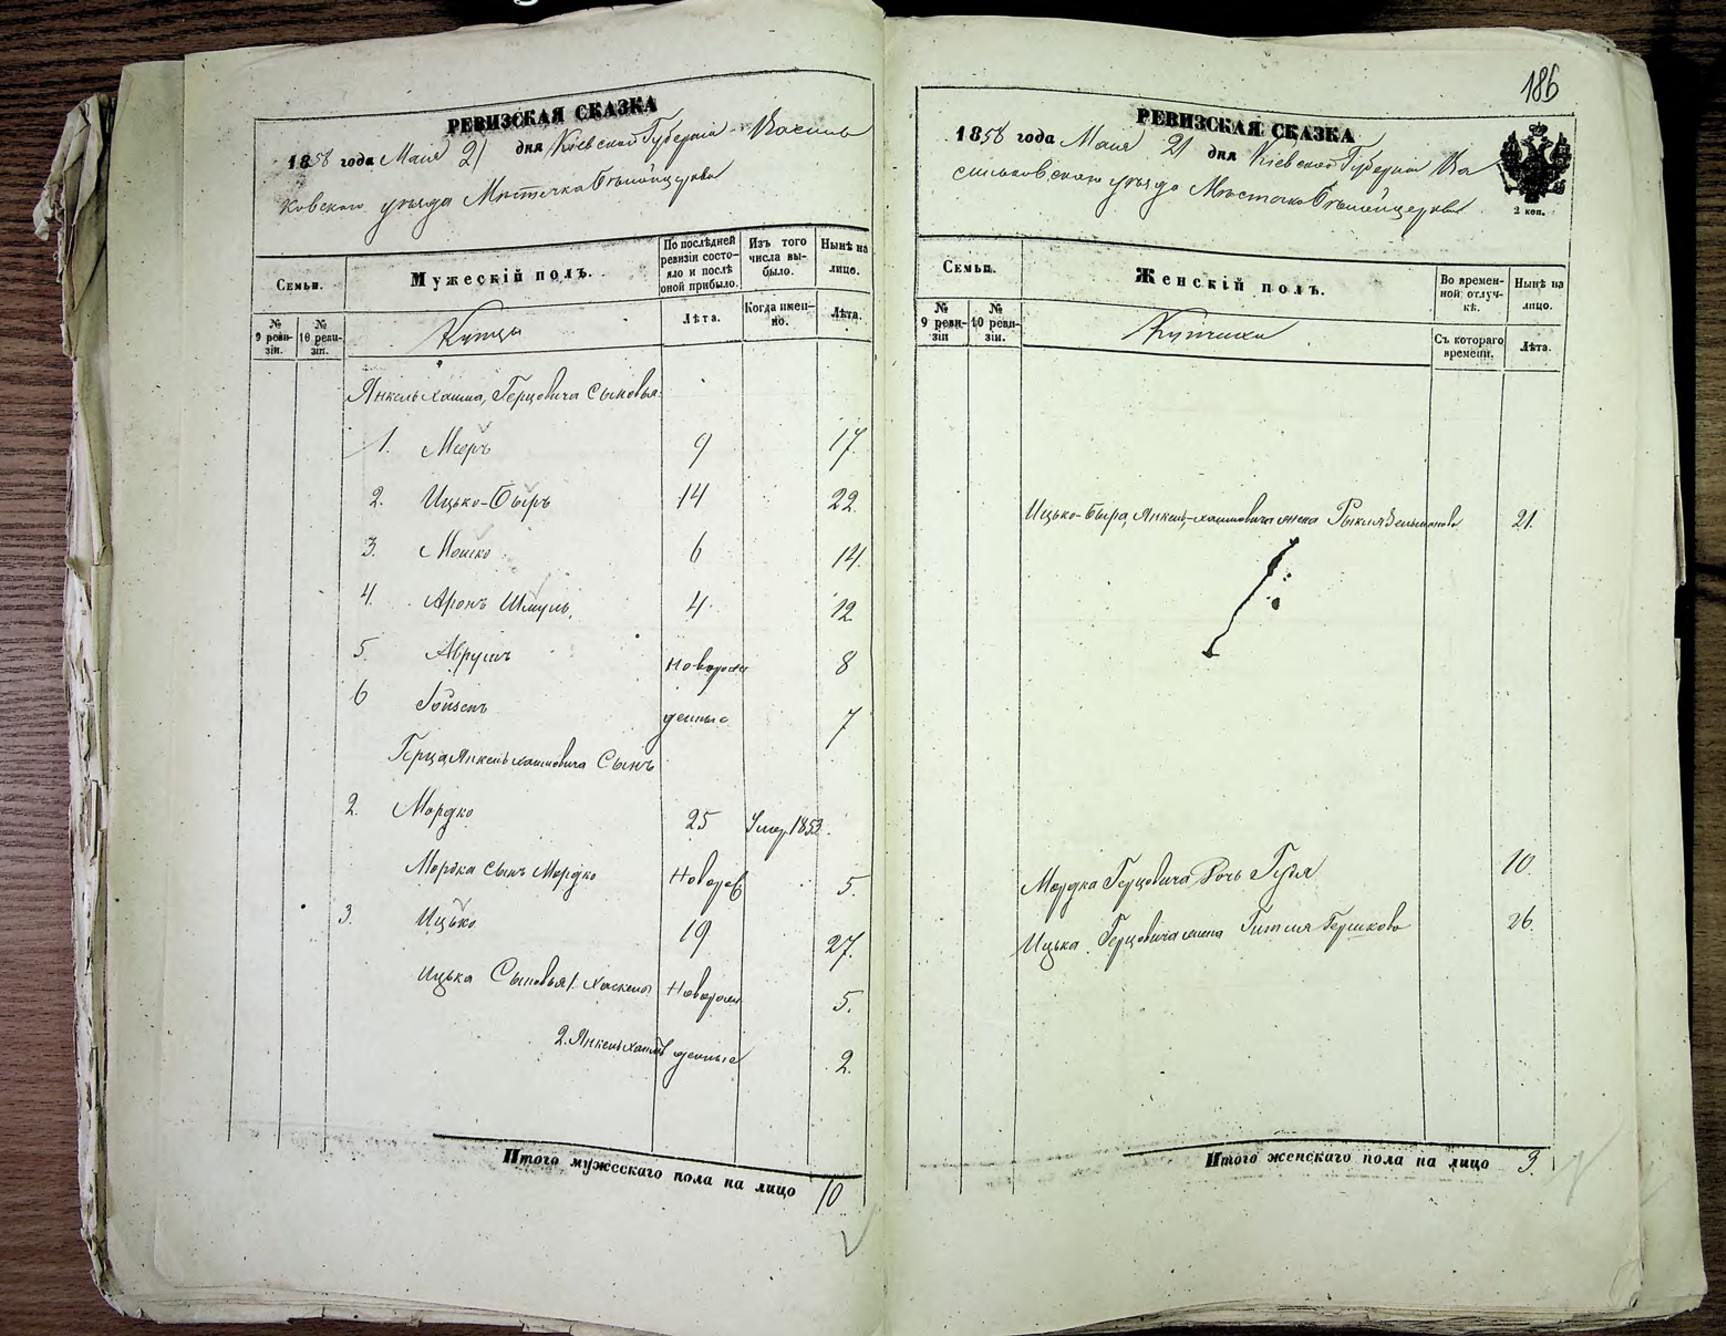 РЕВИЗСКАЯ СКАЗКА
1858 года Мая 21 дня Кіевской Губерніи Василь
ковского уѣзда Мѣстечка Бѣлойцеркви
Семьи.
Мужескій полъ.
По послѣдней ревизіи состояло и послѣ оной прибыло.
Изъ того числа выбыло.
Нынѣ на лицо.
№ 9 ревизіи.
№ 10 ревизіи.
Купцы
Лѣта.
Когда именно.
Лѣта.
Янкель Хаима, Герцовича Сыновья:
1. Мееръ 9 17.
2. Ицько-Бэръ 14 22.
3. Мошко 6 14.
4. Аронъ Шмуль. 4 12
5. Аврумъ Новорож 8
6 денные 7
Герца Янкель Хаимовича Сынъ
2. Мордко 25 Умер. 1853.
Мордка сынъ Мордко Новорож 5.
3. Ицько 19 27.
Ицька Сыновья 1. Новорож 5.
2. Янкель Хаимъ денные 2.
Итого мужескаго пола на лицо 10
186
РЕВИЗСКАЯ СКАЗКА
1858 года Мая 21 дня Кіевской Губерніи Ва
сильковского уѣзда Мѣстечка Бѣлойцеркви
2 коп.
Семьи.
Женскій полъ.
Во временной отлучкѣ.
Нынѣ на лицо.
№ 9 ревизіи
№ 10 ревизіи.
Купчихи
Съ котораго времени.
Лѣта.
Ицько-Бэра, Янкель-Хаимовича жена 21.
Мордка Герцовича Дочь 10.
Ицька Герцовича жена Гитля Гершкова 26.
Итого женскаго пола на лицо 3.